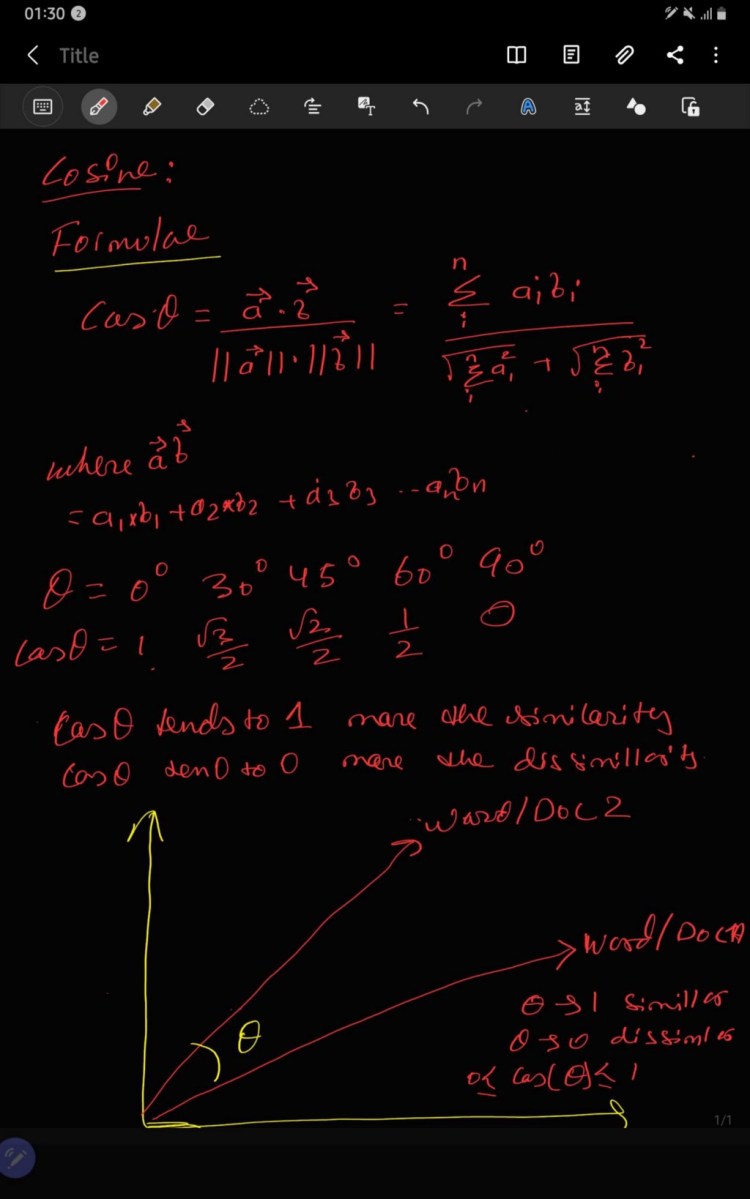 01:30 2
Title
Cosine:
Formulae
Cos θ = a⃗ · b⃗ / ||a⃗|| · ||b⃗|| = n Σ i aᵢbᵢ / √(n Σ i aᵢ²) + √(n Σ i bᵢ²)
where a⃗ b⃗
= a₁×b₁ + a₂*b₂ + a₃b₃ .. aₙbₙ
θ = 0° 30° 45° 60° 90°
Cosθ = 1 √3/2 √2/2 1/2 0
Cosθ tends to 1 more the similarity
Cosθ tenD to 0 more the dissimillarity
Word/DOC 2
Word/DOC1
θ
θ → 1 similler
θ → 0 dissimler
0 ≤ Cos(θ) ≤ 1
1/1